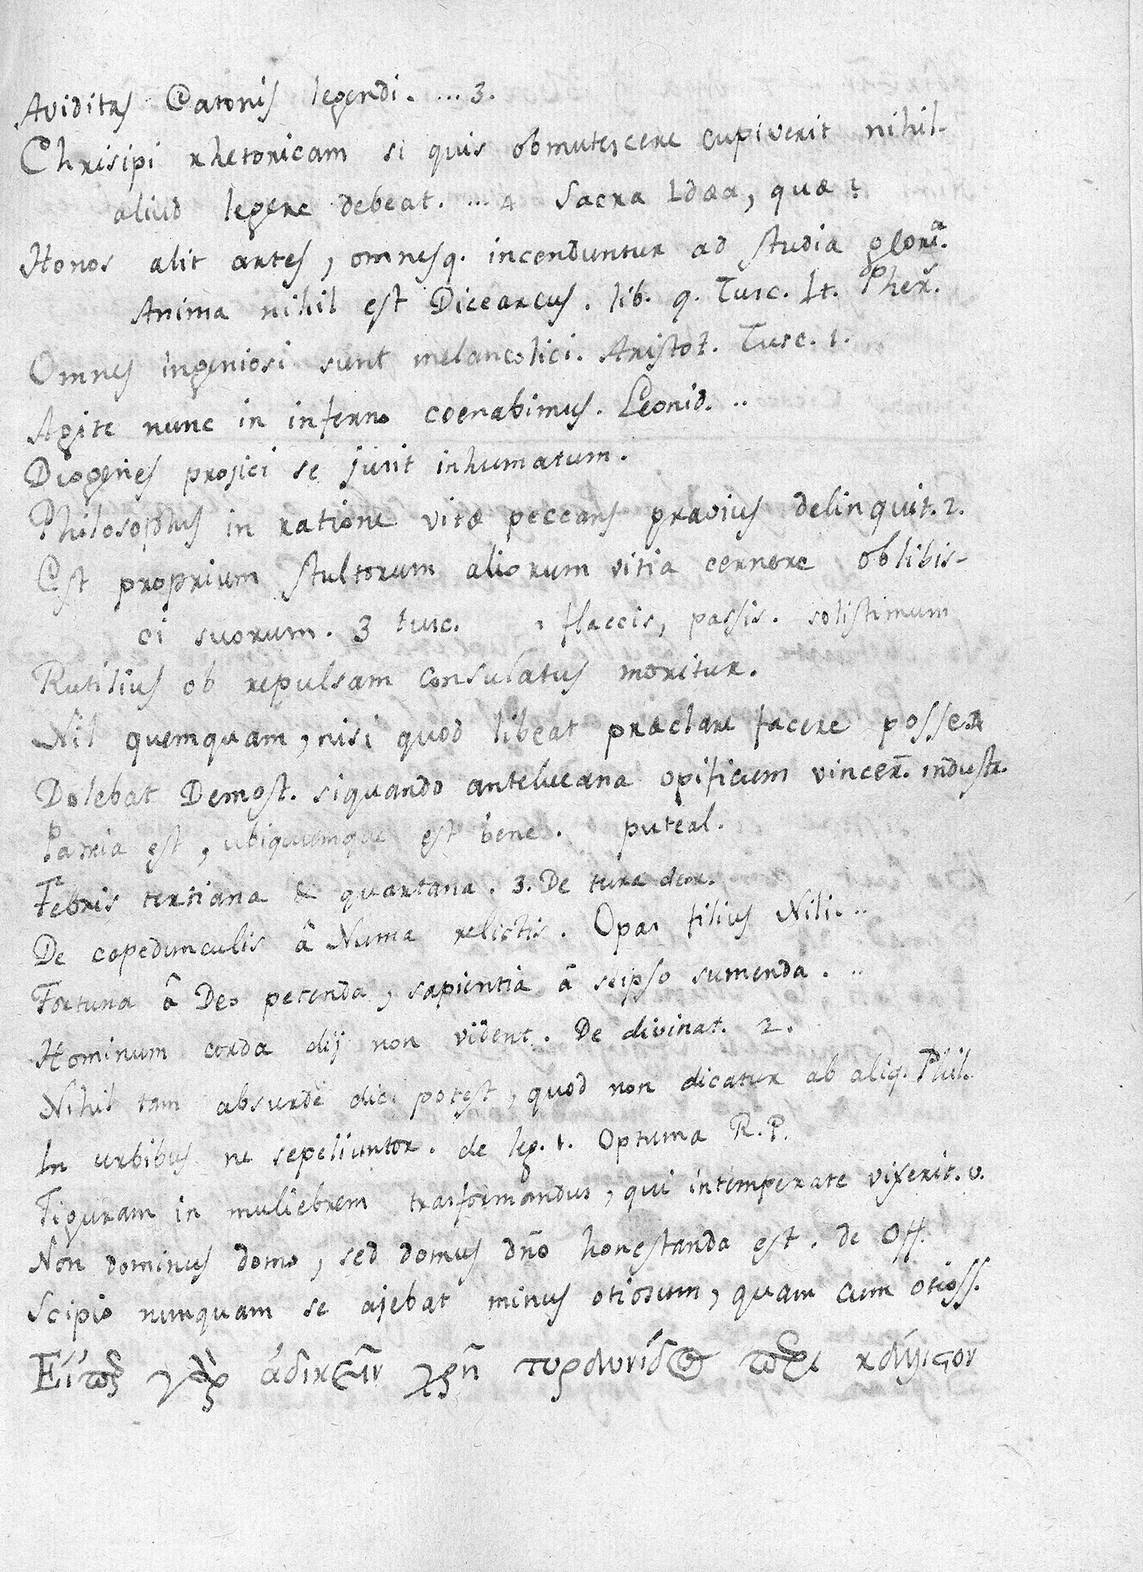 Aviditas Catonis legendi. ... 3.
Chrisipi rhetoricam si quis obmutescere cupiverit nihil-
aliud legere debeat. ... 4 Sacra Idæa, quæ?
Honos alit artes, omnesq. incenduntur ad studia gloria.
Anima nihil est Dicearcus. lib. q. Tusc. Et. Pher.
Omnes ingeniosi sunt melancolici. Aristot. Tusc. 1.
Agite nunc in inferno coenabimus. Leonid. ..
Diogenes projici se jusit inhumatum.
Philosophus in ratione vitæ peccans pravius delinquit. 2.
Est proprium stultorum aliorum vitia cernere oblibis-
ci suorum. 3 tusc. flaccis, passis. solistimum
Rutilius ob repulsam consulatus moritur.
Nil quemquam, nisi quod libeat præclare facere posse.
Dolebat Demost. siquando antelucana opificum vincer. industr.
Patria est, ubiquumque est bene. puteal.
Febris tertiana & quartana. 3. De tura deor.
De capedunculis â Numa relictis. Opas filius Nili. ..
Fortuna â Deo petenda, sapientia â seipso sumenda. ..
Hominum corda dij non vident. De divinat. 2.
Nihil tam absurdè dici potest, quod non dicatur ab aliq. Phil.
In urbibus ne sepeliuntor. de leg. 1. Optuma R.P.
Figuram in muliebrem trasformandus, qui intemperate vixerit. v.
Non dominus domo, sed domus dño honestanda est. de Off.
Scipio nunquam se ajebat minus otiosum, quam cum otioss.
Εἴπερ γὰρ ἀδικεῖν χρὴ τυραννίδος πέρι κάλλιστον